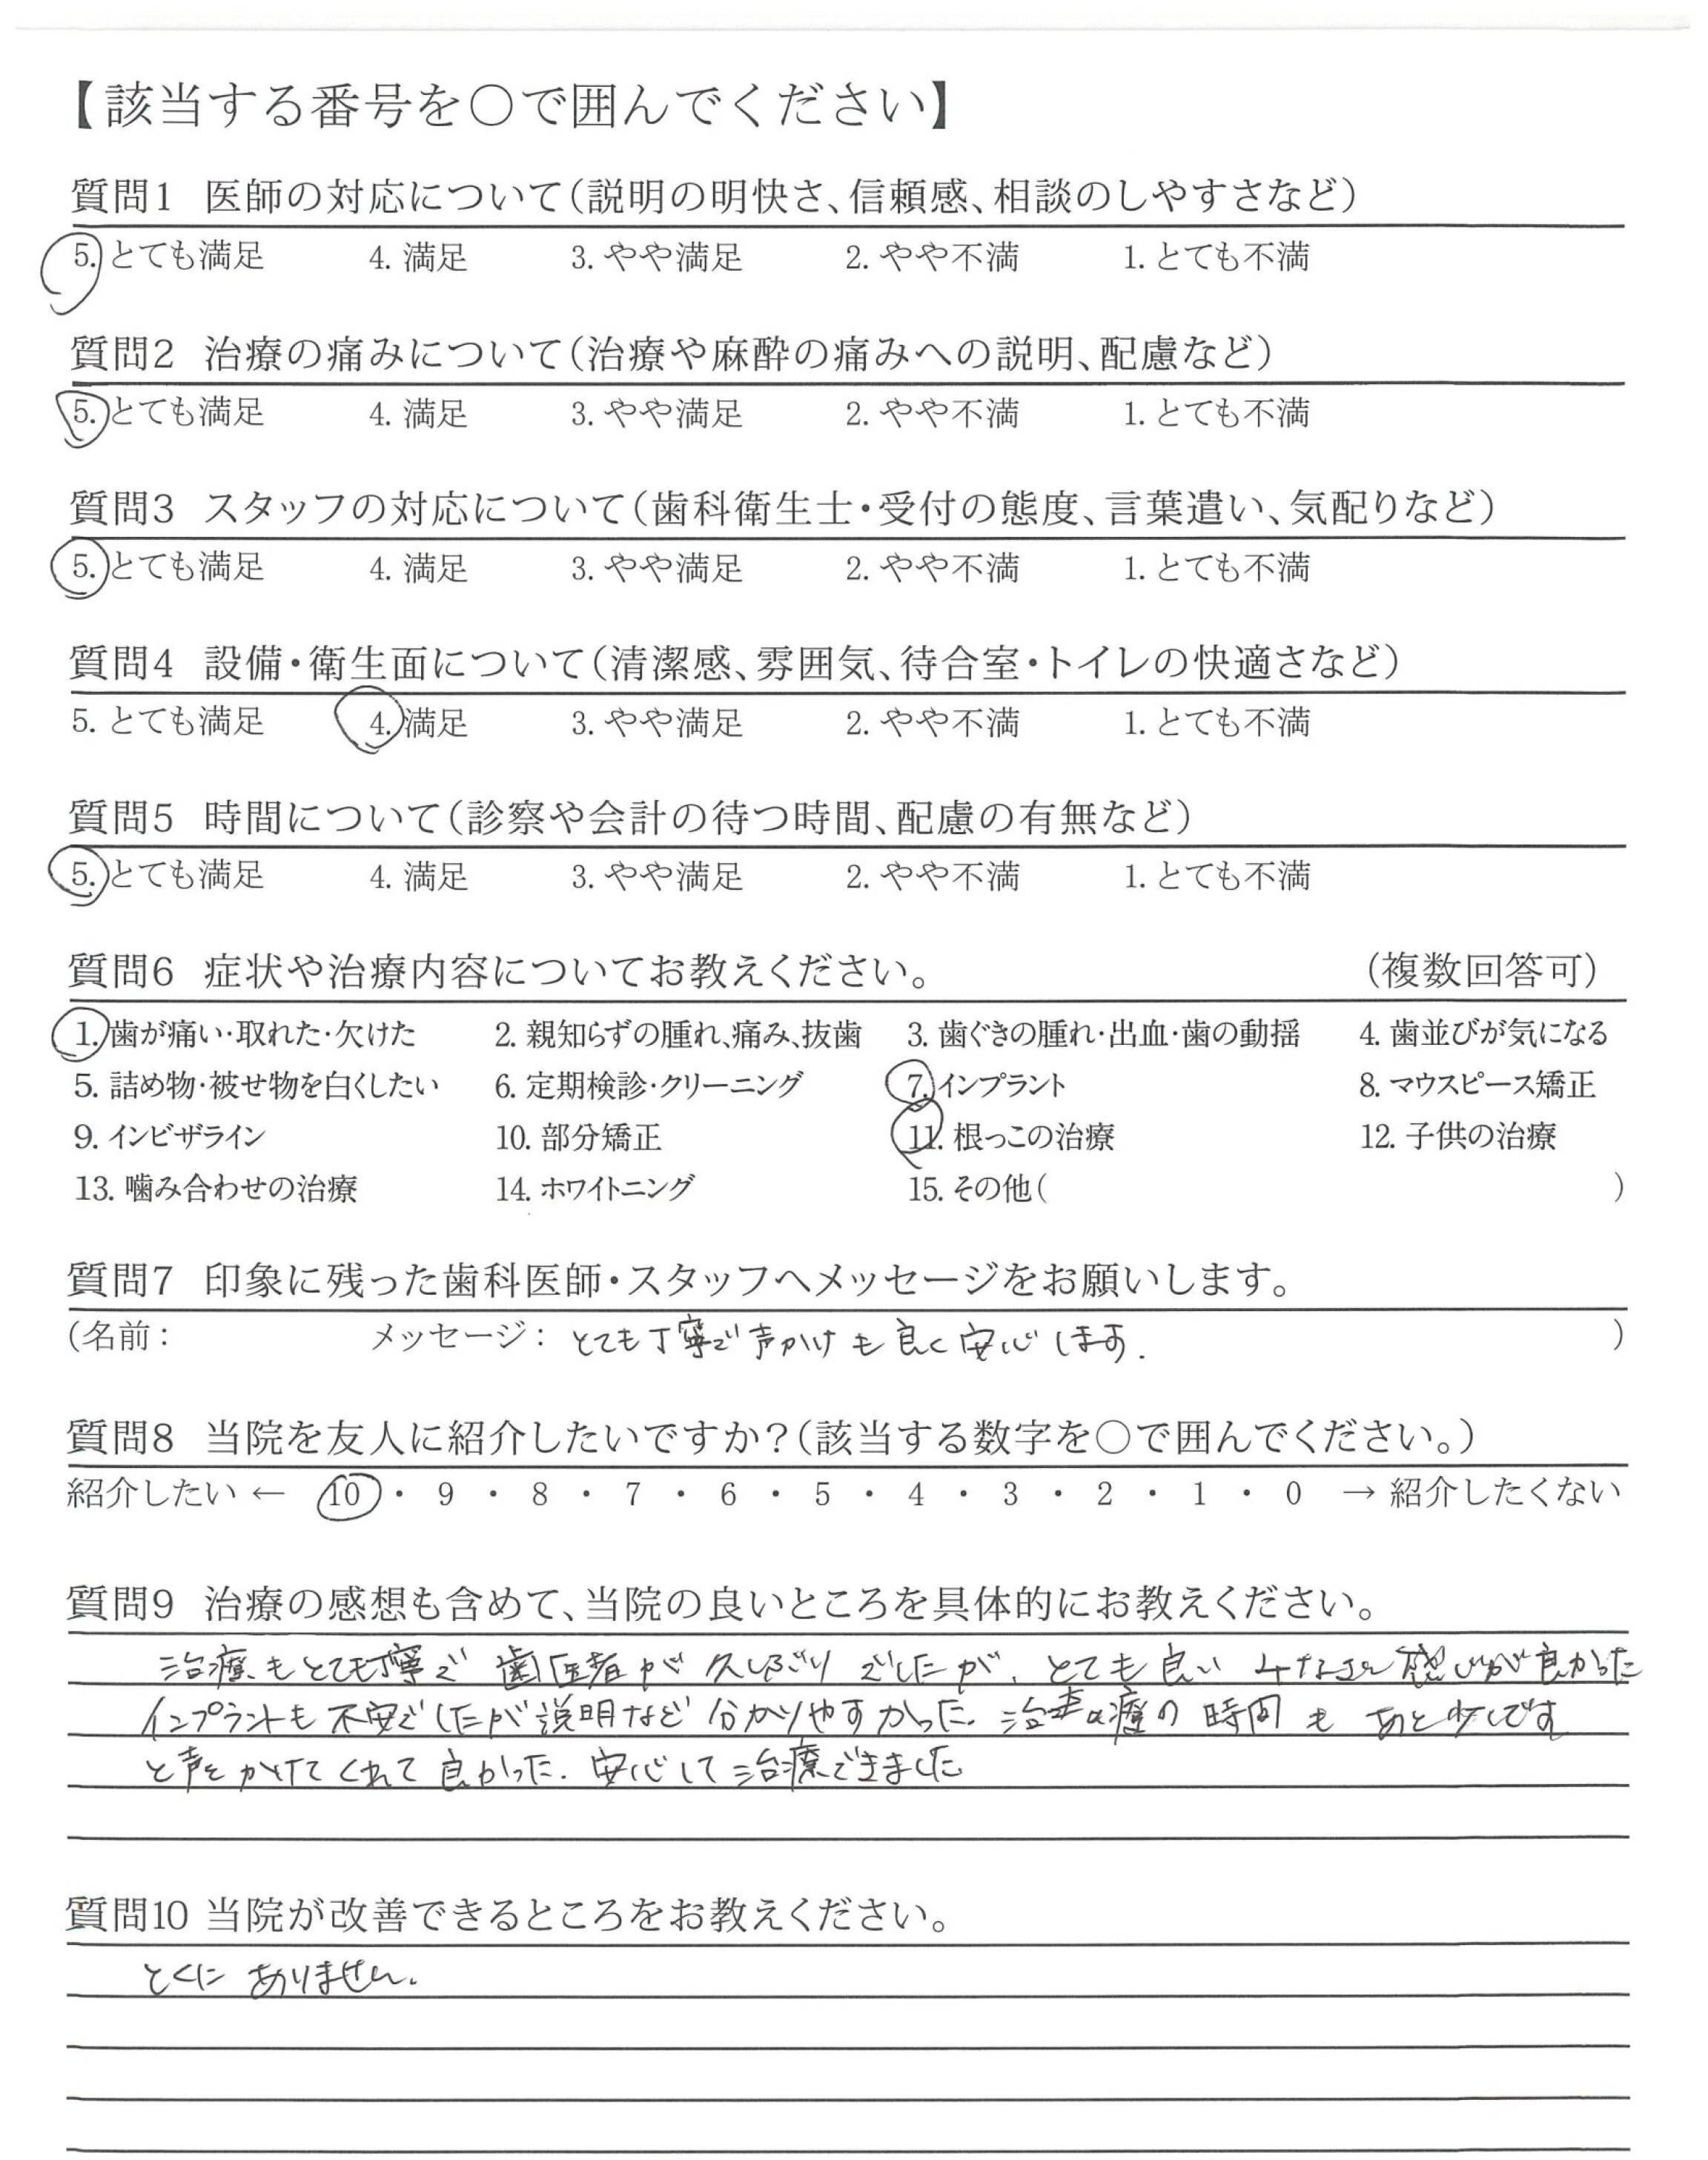 【該当する番号を○で囲んでください】
質問1 医師の対応について(説明の明快さ、信頼感、相談のしやすさなど)
5. とても満足 4. 満足 3. やや満足 2. やや不満 1. とても不満
質問2 治療の痛みについて(治療や麻酔の痛みへの説明、配慮など)
5. とても満足 4. 満足 3. やや満足 2. やや不満 1. とても不満
質問3 スタッフの対応について(歯科衛生士・受付の態度、言葉遣い、気配りなど)
5. とても満足 4. 満足 3. やや満足 2. やや不満 1. とても不満
質問4 設備・衛生面について(清潔感、雰囲気、待合室・トイレの快適さなど)
5. とても満足 4. 満足 3. やや満足 2. やや不満 1. とても不満
質問5 時間について(診察や会計の待つ時間、配慮の有無など)
5. とても満足 4. 満足 3. やや満足 2. やや不満 1. とても不満
質問6 症状や治療内容についてお教えください。 (複数回答可)
1. 歯が痛い・取れた・欠けた 2. 親知らずの腫れ、痛み、抜歯 3. 歯ぐきの腫れ・出血・歯の動揺 4. 歯並びが気になる
5. 詰め物・被せ物を白くしたい 6. 定期検診・クリーニング 7. インプラント 8. マウスピース矯正
9. インビザライン 10. 部分矯正 11. 根っこの治療 12. 子供の治療
13. 噛み合わせの治療 14. ホワイトニング 15. その他( )
質問7 印象に残った歯科医師・スタッフへメッセージをお願いします。
(名前: メッセージ: とても丁寧で声かけも良く安心します. )
質問8 当院を友人に紹介したいですか?(該当する数字を○で囲んでください。)
紹介したい ← 10 ・ 9 ・ 8 ・ 7 ・ 6 ・ 5 ・ 4 ・ 3 ・ 2 ・ 1 ・ 0 → 紹介したくない
質問9 治療の感想も含めて、当院の良いところを具体的にお教えください。
治療もとても丁寧で 歯医者が久しぶりでしたが、とても良い みなさん感じが良かった
インプラントも不安でしたが説明など分かりやすかった. 治療の時間も あと少しです
と声をかけてくれて良かった. 安心して治療できました
質問10 当院が改善できるところをお教えください。
とくにありません.